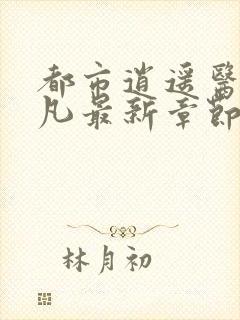 都市逍遥醫
凡最新章節
林月初